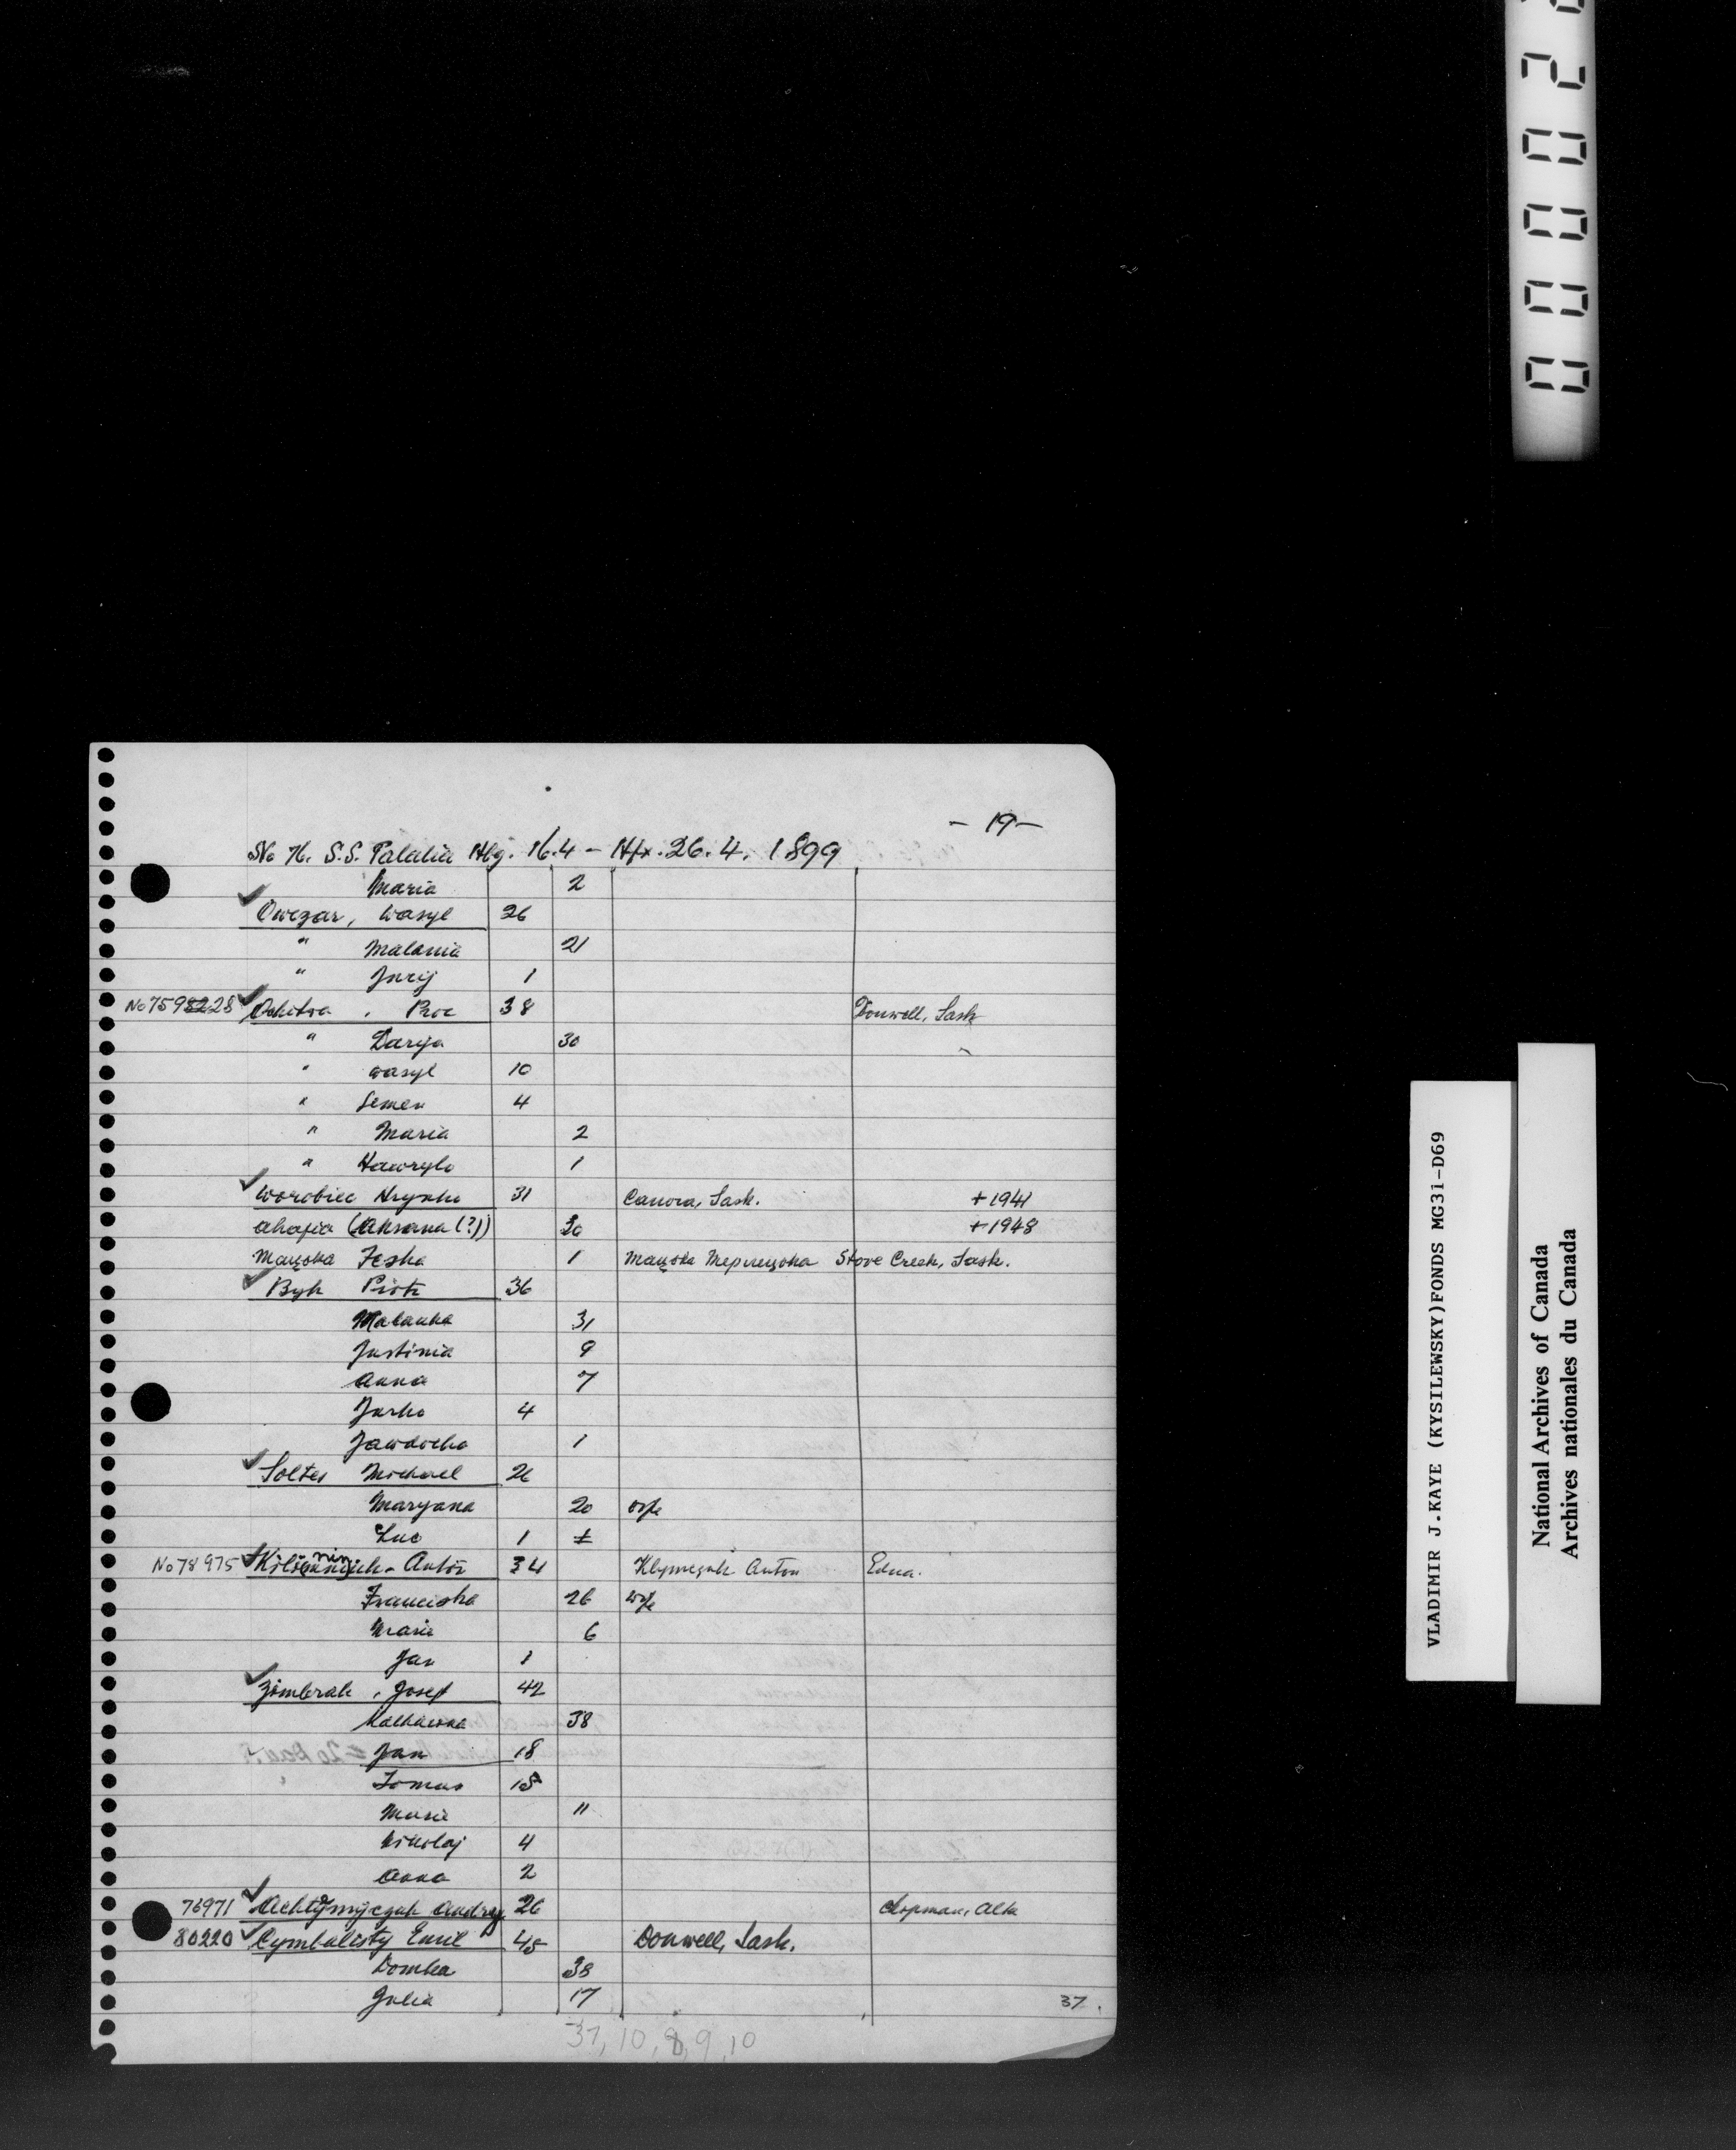 - 19 -
No 76. S.S. Palatia Hbg. 16.4 - Hfx. 26.4. 1899
Maria 2
Owczar, Wasyl 26
" Malania 21
" Jurij 1
Proc 38 Donwell, Sask
" Darya 30
" Wasyl 10
" Semen 4
" Maria 2
" Hawrylo 1
Worobiec Hrynko 31 Canora, Sask. + 1941
Ahafia (Aksana (?)) 30 + 1948
Teska 1 Stove Creek, Sask.
Byk Piotr 36
Malanka 31
Justinia 9
Anna 7
Jurko 4
Jawdocha 1
Soltes Michael 26
Maryana 20 wife
Luc 1
No 78975 Anton 34 Anton Edna.
Franciska 26 wife
Maria 6
Jan 1
Zimbrak, Josef 42
38
Jan 18
Tomas 15
Maria 11
Nikolaj 4
Anna 2
Achtymijczuk Andrey 26 Chipman, Alta
80220 Cymbalisty Emil 45 Donwell, Sask.
Domka 38
Julia 17
37.
37, 10, 8, 9, 10
VLADIMIR J.KAYE (KYSILEWSKY)FONDS MG31-D69
National Archives of Canada
Archives nationales du Canada